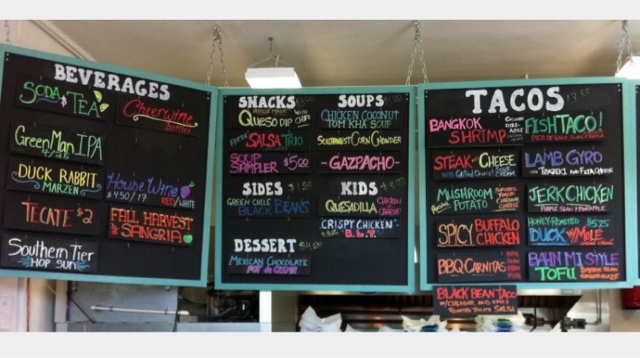 BEVERAGES
SODA & TEA
Cheerwine
bottles
GREEN MAN IPA
DUCK RABBIT
MARZEN
HOUSE WINE
$4.50/17 RED/WHITE
TECATE $2
FALL HARVEST
SANGRIA
SOUTHERN TIER
HOP SUN
SNACKS
QUESO DIP WITH CHIPS
SALSA TRIO
SOUP
SAMPLER $5.00
SIDES
GREEN CHILE
BLACK BEANS
DESSERT
MEXICAN CHOCOLATE
POT DE CREME
SOUPS
CHICKEN COCONUT
TOM KHA SOUP
SOUTHWEST CORN CHOWDER
-GAZPACHO-
KIDS
QUESADILLA CHICKEN
CHEESE
CRISPY CHICKEN
B.L.T.
TACOS
BANGKOK
SHRIMP
FISH TACO!
STEAK AND CHEESE
LAMB GYRO
MUSHROOM
POTATO
JERK CHICKEN
SPICY BUFFALO
CHICKEN
HONEY-ROASTED
DUCK W/ MOLE
BBQ CARNITAS
BAHN MI STYLE
TOFU
BLACK BEAN TACO